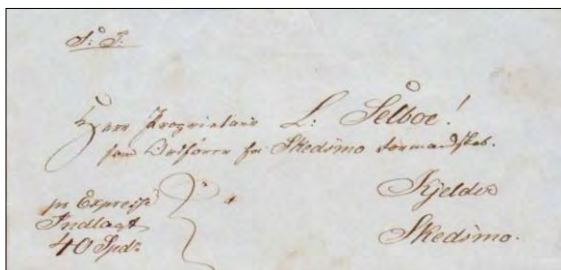 S: T:
Herr Proprietair L: Selboe!
som Ordfører for Skedsmo Formandskab.
Kjelder
Skedsmo.
pr Expresse
Indlagt
40 Spd: